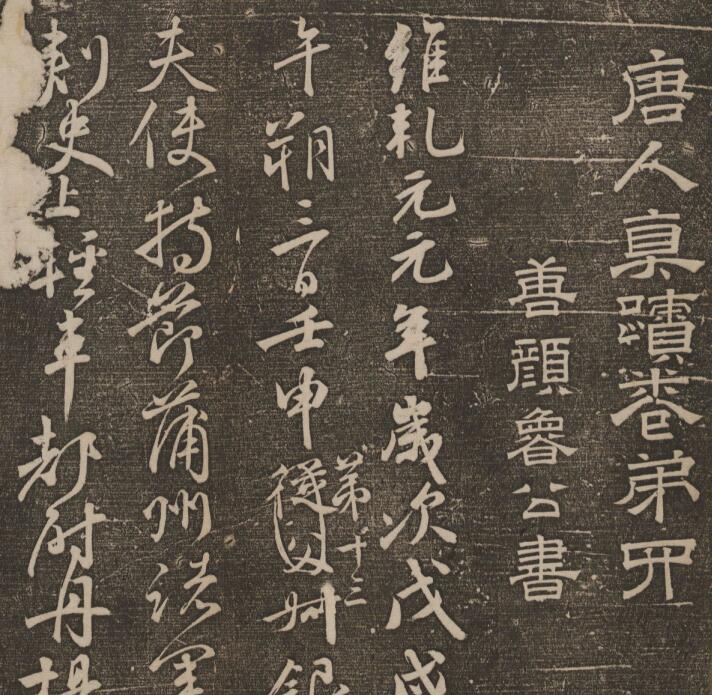 唐人真蹟卷弟四
善顔魯公書
維乾元元年歲次戊戌
第十三
午朔三日壬申從父叔銀
夫使持節蒲州諸軍
刾史上輕車都尉丹楊